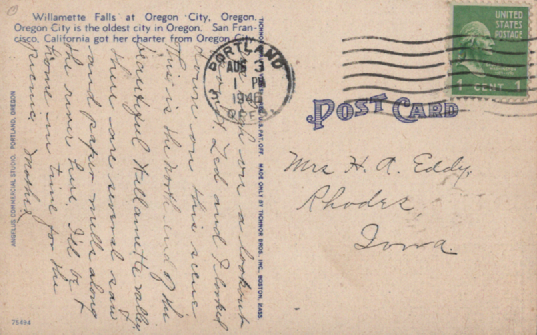 Willamette Falls at Oregon City, Oregon.
Oregon City is the oldest city in Oregon. San Fran-
cisco, California got her charter from Oregon City.
PORTLAND
AUG 3
1 PM
1940
OREG.
UNITED
STATES
POSTAGE
1 CENT 1
POST CARD
Mrs H. A. Eddy,
Rhodes,
Iowa.
on a lookout
Ted and I looked
down on this scene
This is the North end of the
beautiful Willamette valley
there are several saw
and paper mills along
the river here. I'll be
home in time for the
picnic, Mother
ANGELUS COMMERCIAL STUDIO, PORTLAND, OREGON
MADE ONLY BY TICHNOR BROS., INC., BOSTON, MASS.